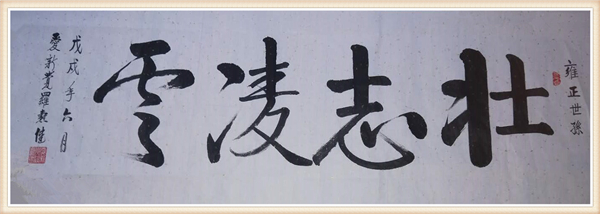 雍正世孫
壮志凌雲
戊戌年六月
愛新覺羅